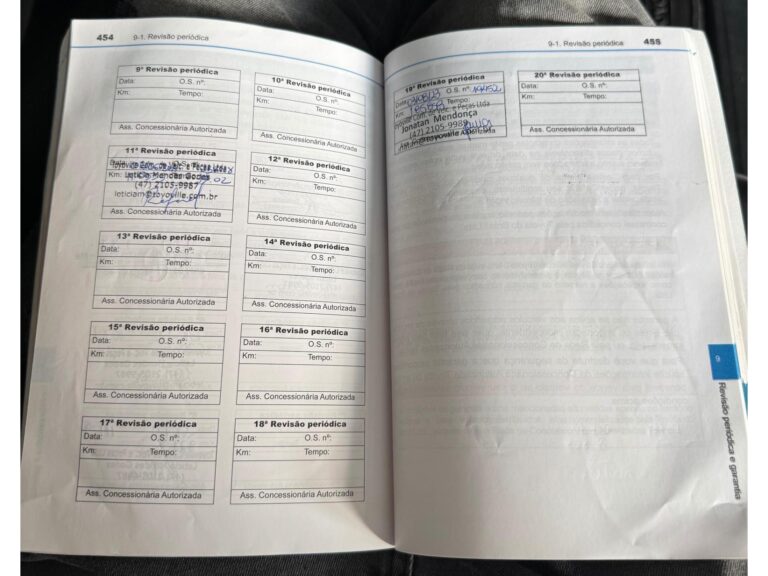 454 9-1. Revisão periódica
9ª Revisão periódica
Data: O.S. nº:
Km: Tempo:
Ass. Concessionária Autorizada
10ª Revisão periódica
Data: O.S. nº:
Km: Tempo:
Ass. Concessionária Autorizada
11ª Revisão periódica
Km:
Leticia Mendes Godoi
(47) 2105-9987
leticiam@toyoville.com.br
Ass. Concessionária Autorizada
12ª Revisão periódica
Data: O.S. nº:
Km: Tempo:
Ass. Concessionária Autorizada
13ª Revisão periódica
Data: O.S. nº:
Km: Tempo:
Ass. Concessionária Autorizada
14ª Revisão periódica
Data: O.S. nº:
Km: Tempo:
Ass. Concessionária Autorizada
15ª Revisão periódica
Data: O.S. nº:
Km: Tempo:
Ass. Concessionária Autorizada
16ª Revisão periódica
Data: O.S. nº:
Km: Tempo:
Ass. Concessionária Autorizada
17ª Revisão periódica
Data: O.S. nº:
Km: Tempo:
Ass. Concessionária Autorizada
18ª Revisão periódica
Data: O.S. nº:
Km: Tempo:
Ass. Concessionária Autorizada
9-1. Revisão periódica 455
19ª Revisão periódica
Data: O.S. nº
Km: Tempo:
Com. de Veíc. e Peças Ltda
Jonatan Mendonça
(47) 2105-9989
20ª Revisão periódica
Data: O.S. nº:
Km: Tempo:
Ass. Concessionária Autorizada
9
Revisão periódica e garantia